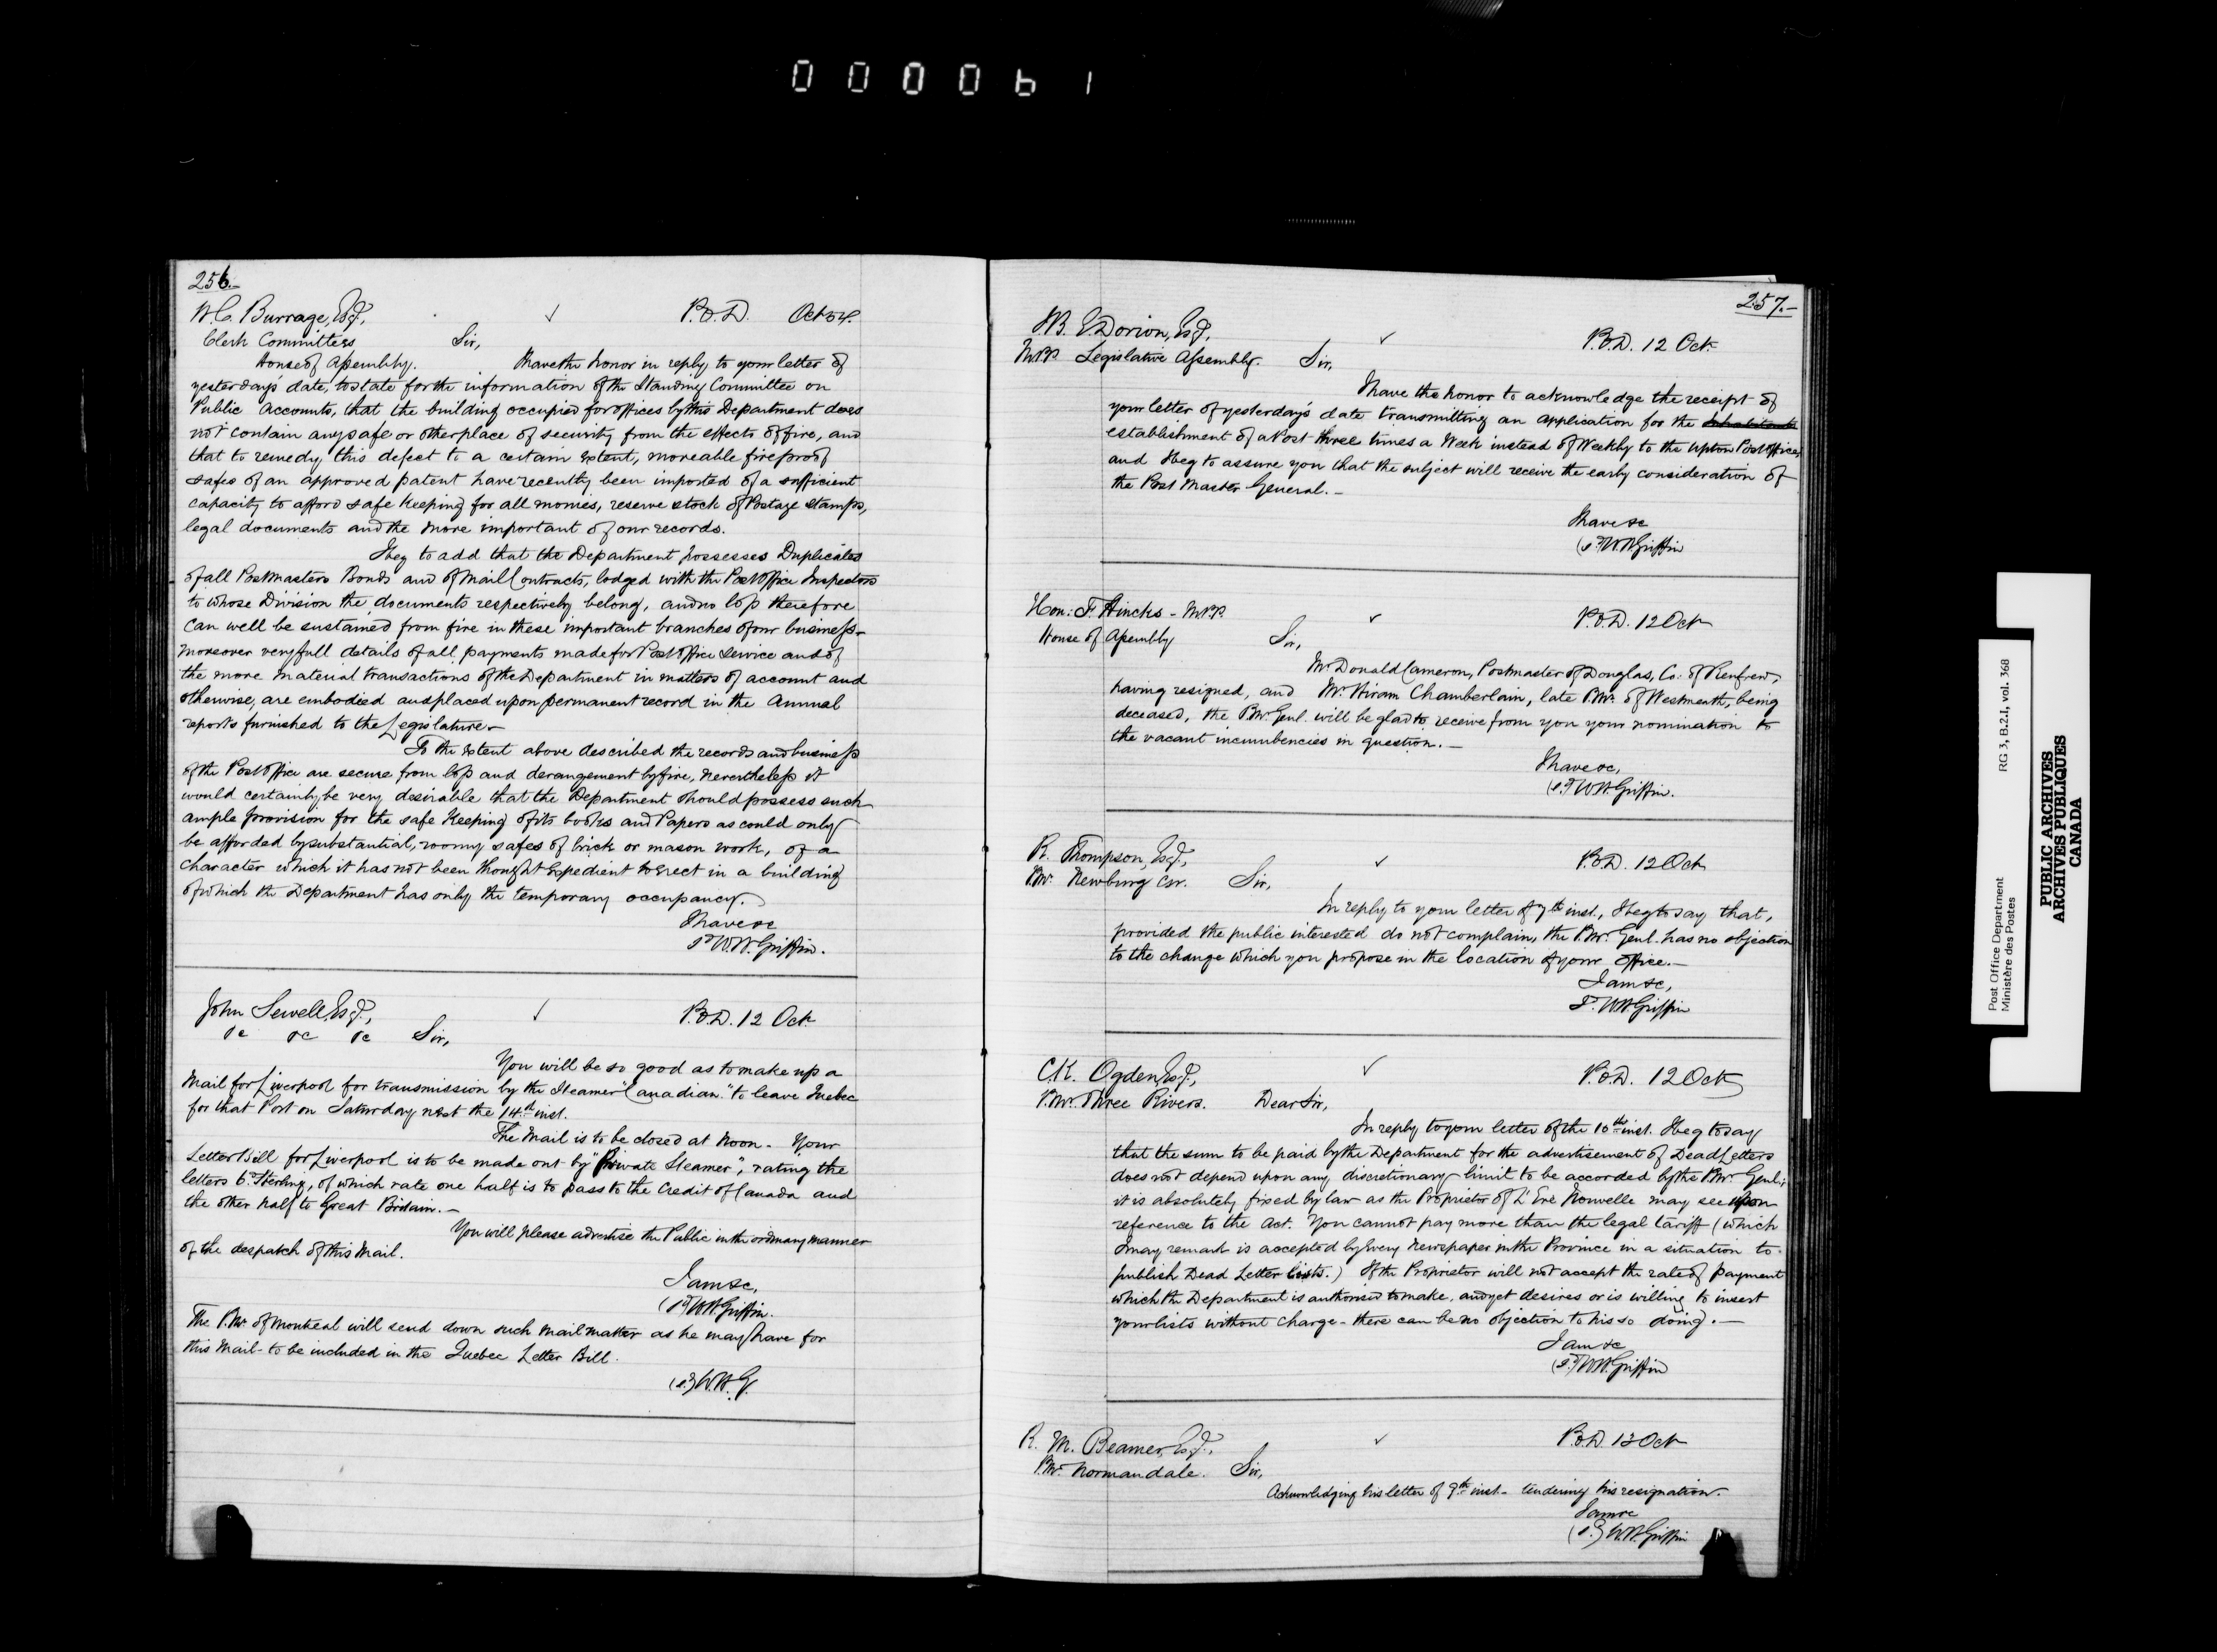 000061
256.-
W.C. Burrage, Esq., ✓ P.O.D. Oct
Clerk Committees Sir,
House of Assembly. I have the honor in reply to your letter of
yesterday's date, to state for the information of the Standing Committee on
Public Accounts, that the building occupied for offices by this Department does
not contain any safe or other place of security from the effects of fire, and
that to remedy this defect to a certain extent, moveable fire proof
safes of an approved patent have recently been imported of a sufficient
capacity to afford safe keeping for all monies, reserve stock of Postage Stamps,
legal documents and the more important of our records.
I beg to add that the Department possesses Duplicates
of all Postmasters Bonds and of Mail Contracts, lodged with the Post Office Inspectors
to whose Division the documents respectively belong, and no loss therefore
can well be sustained from fire in these important branches of our business -
moreover very full details of all payments made for Post Office Service and of
the more material transactions of the Department in matters of account and
otherwise, are embodied and placed upon permanent record in the Annual
reports furnished to the Legislature -
To the extent above described the records and business
of the Post Office are secure from loss and derangement by fire, nevertheless it
would certainly be very desirable that the Department should possess such
ample provision for the safe keeping of its books and Papers as could only
be afforded by substantial, roomy safes of brick or mason work, of a
character which it has not been thought expedient to erect in a building
of which the Department has only the temporary occupancy.
I have &c
sd W.H. Griffin.
John Sewell, Esq., ✓ P.O.D. 12 Oct.
&c &c &c Sir,
You will be so good as to make up a
Mail for Liverpool for transmission by the Steamer "Canadian" to leave Quebec
for that Port on Saturday next the 14th inst.
The Mail is to be closed at Noon - Your
Letter Bill for Liverpool is to be made out by "Private Steamer", rating the
letters 6d Sterling, of which rate one half is to pass to the Credit of Canada and
the other half to Great Britain. -
You will please advertise the Public in the ordinary manner
of the despatch of this Mail.
I am &c,
(sd) W.H. Griffin.
The P.Mr. of Montreal will send down such mail matter as he may have for
this Mail - to be included in the Quebec Letter Bill.
(sd) W.H.G.
257.-
J.B.E. Dorion, Esq., ✓ P.O.D. 12 Oct.
M.P.P. Legislative Assembly. Sir,
I have the honor to acknowledge the receipt of
your letter of yesterday's date transmitting an application for the
establishment of a Post three times a Week instead of Weekly to the Upton Post Office,
and I beg to assure you that the subject will receive the early consideration of
the Post Master General. -
I have &c
(sd) W.H. Griffin
Hon: F. Hincks - M.P.P. ✓ P.O.D. 12 Oct
House of Assembly Sir,
Mr. Donald Cameron, Postmaster of Douglas, Co. of Renfrew,
having resigned, and Mr. Hiram Chamberlain, late P.Mr. of Westmeath, being
deceased, the P.Mr. Genl. will be glad to receive from you your nomination to
the vacant incumbencies in question. -
I have &c,
(sd) W.H. Griffin.
R. Thompson, Esq., ✓ P.O.D. 12 Oct
P.Mr. Newburg C.W. Sir,
In reply to your letter of 7th inst., I beg to say that,
provided the public interested do not complain, the P.Mr. Genl. has no objection
to the change which you propose in the location of your Office. -
I am &c,
sd W.H. Griffin
C.K. Ogden, Esq., ✓ P.O.D. 12 Oct
P.Mr. Three Rivers. Dear Sir,
In reply to your letter of the 10th inst. I beg to say
that the sum to be paid by the Department for the advertisement of Dead Letters
does not depend upon any discretionary limit to be accorded by the P.Mr. Genl.;
it is absolutely fixed by law as the Proprietor of L'Ere Nouvelle may see upon
reference to the Act. You cannot pay more than the legal tariff (which
I may remark is accepted by every Newspaper in the Province in a situation to
publish Dead Letter lists.) If the Proprietor will not accept the rate of payment
which the Department is authorised to make, and yet desires or is willing to insert
your lists without charge - there can be no objection to his so doing. -
I am &c
(sd) W.H. Griffin
R. M. Beamer, Esq., ✓ P.O.D. 13 Oct
P.Mr. Normandale. Sir,
Acknowledging his letter of 9th inst - tendering his resignation. -
I am &c
(sd) W.H. Griffin
Post Office Department RG 3, B.2.I, vol. 368
Ministère des Postes
PUBLIC ARCHIVES
ARCHIVES PUBLIQUES
CANADA